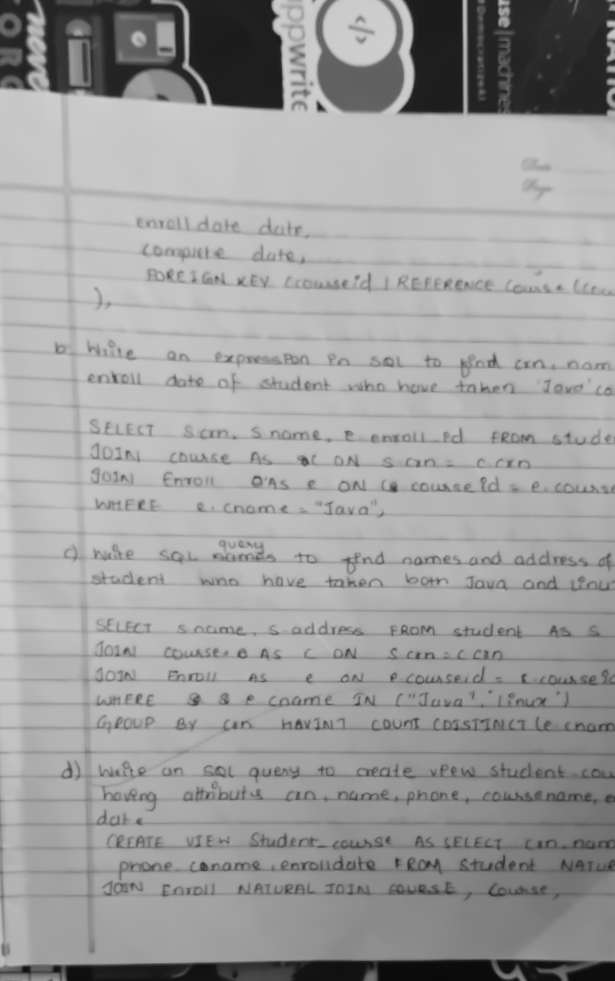 never
TORC
ppwrite
</>
use|machines
NATION
Date
Page
enrolldate date,
complete date,
FOREIGN KEY (courseid) REFERENCE Course (Cou
),
b. Write an expression in SQL to find crn, nam
enroll date of student who have taken 'Java' co
SELECT s crn, s name, e. enroll_id FROM stude
JOIN course AS C ON s crn = c crn
JOIN Enroll AS e ON courseid = e. course
WHERE e. cname = "Java",
c) Write SQL query to find names and address of
student who have taken both Java and Linu
SELECT s name, s. address FROM student AS S
JOIN course AS C ON s crn = c crn
JOIN Enroll AS e ON e courseid = courseid
WHERE e cname IN ("Java", 'Linux')
GROUP BY crn HAVING COUNT (DISTINCT (e cnam
d) Write an SQL query to create view student cou
having attributes crn, name, phone, coursename, e
date
CREATE VIEW Student_course AS SELECT crn, nam
phone. coname, enrolldate FROM Student NATUR
JOIN Enroll NATURAL JOIN COURSE, Course,